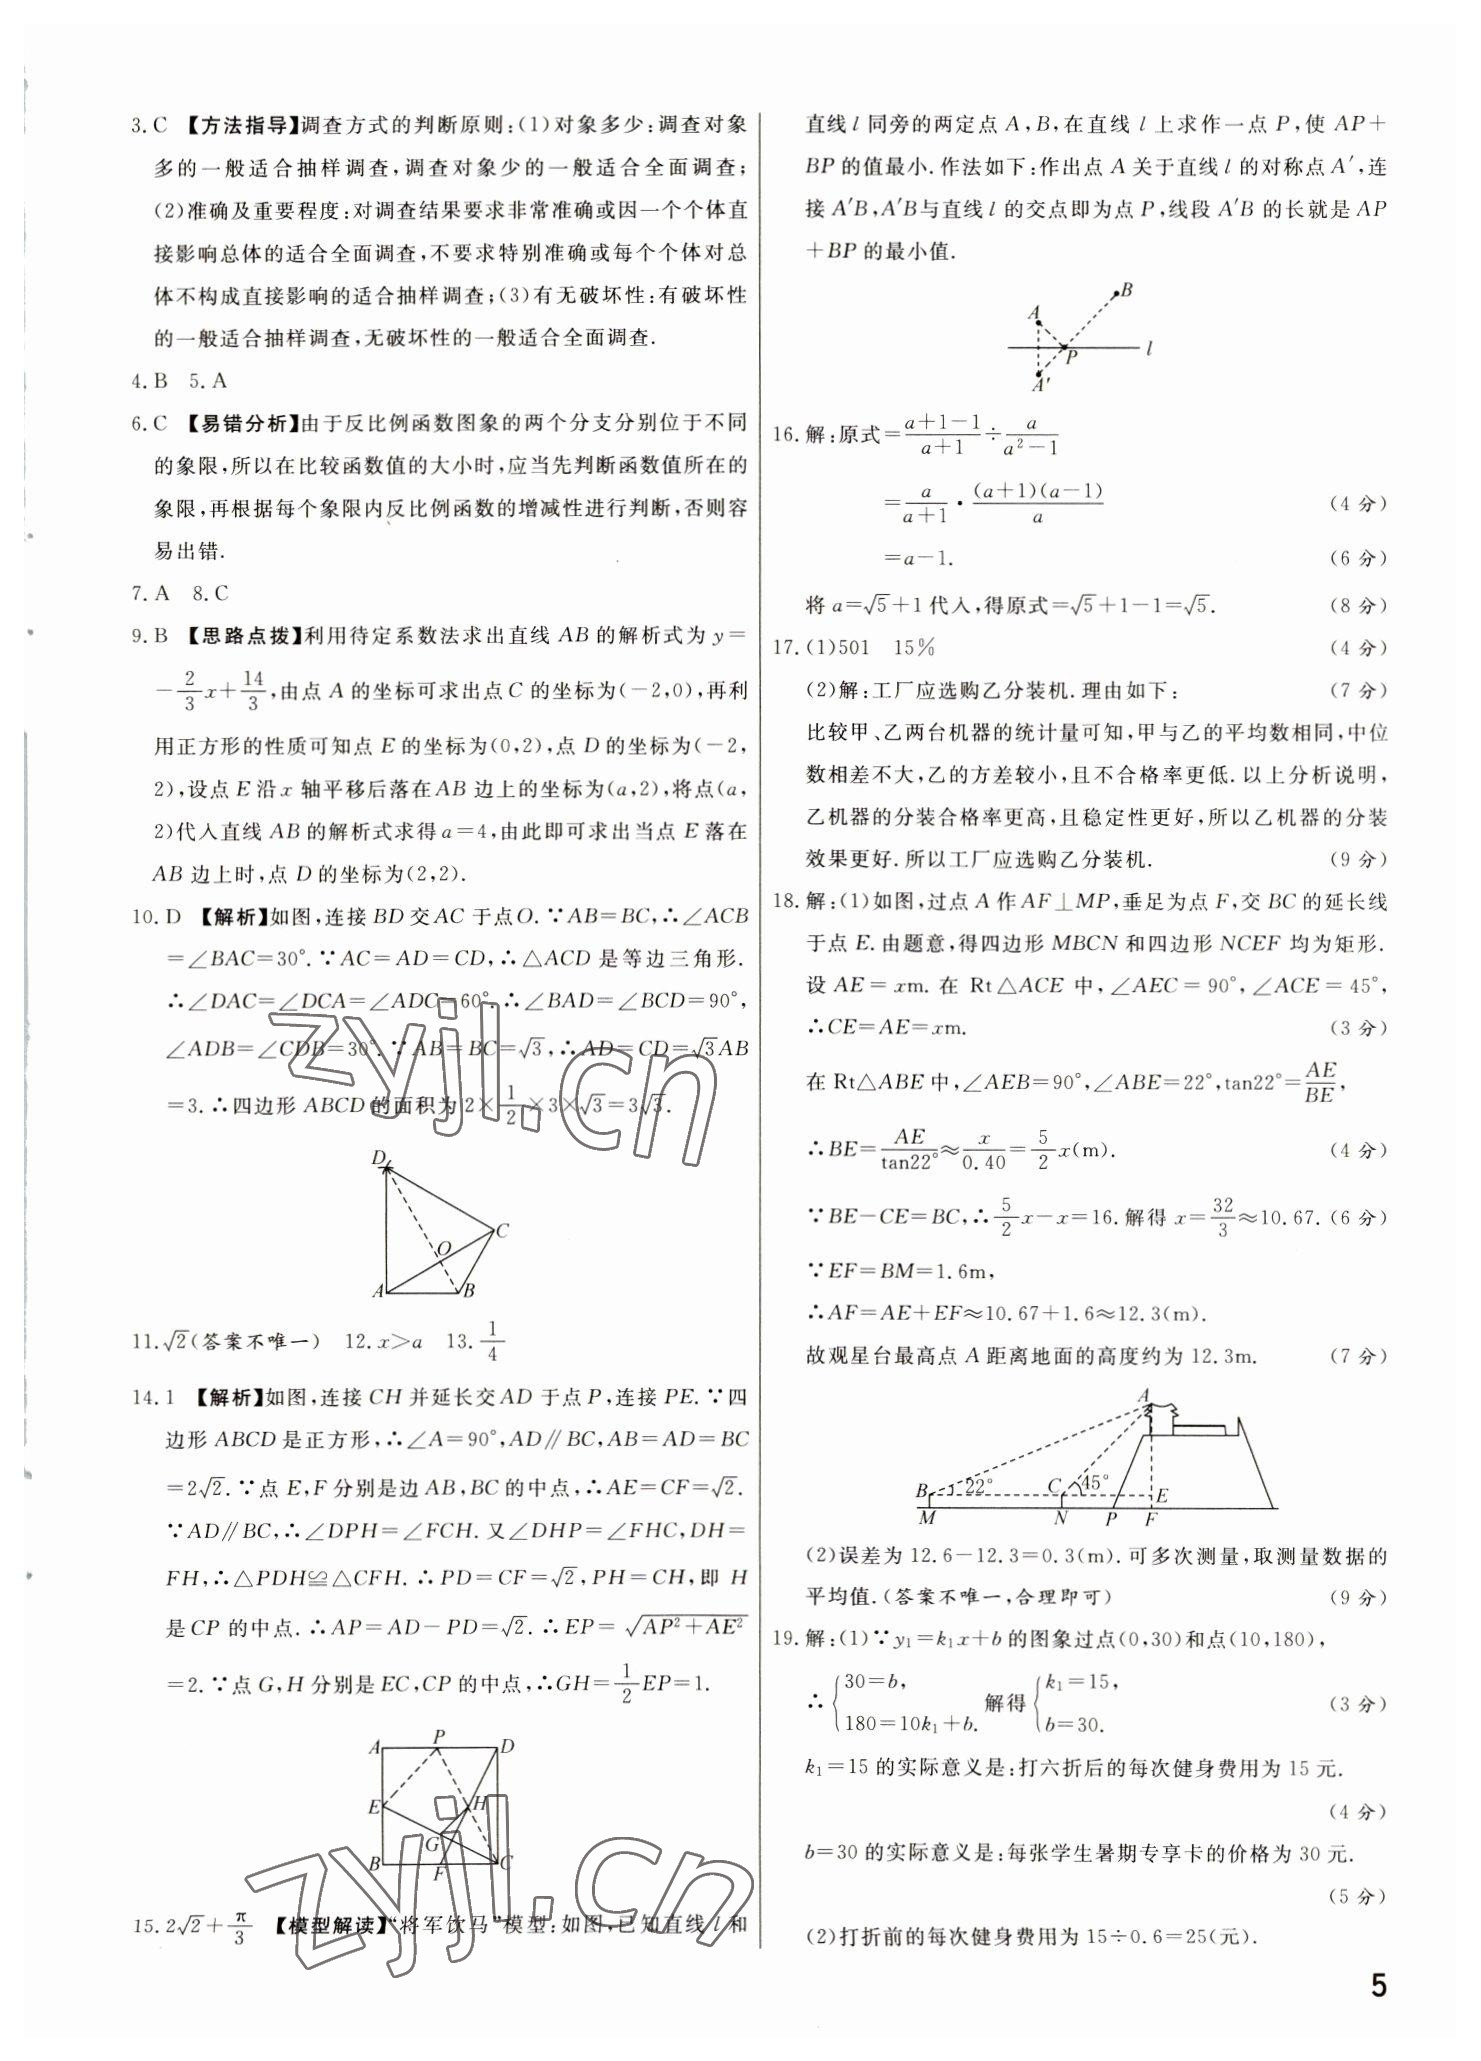 3.C 【方法指导】调查方式的判断原则:(1)对象多少:调查对象
多的一般适合抽样调查,调查对象少的一般适合全面调查;
(2)准确及重要程度:对调查结果要求非常准确或因一个个体直
接影响总体的适合全面调查,不要求特别准确或每个个体对总
体不构成直接影响的适合抽样调查;(3)有无破坏性:有破坏性
的一般适合抽样调查,无破坏性的一般适合全面调查.
4.B 5.A
6.C 【易错分析】由于反比例函数图象的两个分支分别位于不同
的象限,所以在比较函数值的大小时,应当先判断函数值所在的
象限,再根据每个象限内反比例函数的增减性进行判断,否则容
易出错.
7.A 8.C
9.B 【思路点拨】利用待定系数法求出直线 AB 的解析式为 y=
-2/3x+14/3,由点 A 的坐标可求出点 C 的坐标为(-2,0),再利
用正方形的性质可知点 E 的坐标为(0,2),点 D 的坐标为(-2,
2),设点 E 沿 x 轴平移后落在 AB 边上的坐标为(a,2),将点(a,
2)代入直线 AB 的解析式求得 a=4,由此即可求出当点 E 落在
AB 边上时,点 D 的坐标为(2,2).
10.D 【解析】如图,连接 BD 交 AC 于点O.∵AB=BC,∴∠ACB
=∠BAC=30°.∵AC=AD=CD,∴△ACD 是等边三角形.
∴∠DAC=∠DCA=∠ADC=60°.∴∠BAD=∠BCD=90°,
∠ADB=∠CDB=30°.∵AB=BC=√3,∴AD=CD=√3AB
=3.∴四边形 ABCD 的面积为 2×1/2×3×√3=3√3.
D
C
O
A
B
11.√2(答案不唯一) 12.x>a 13.1/4
14.1 【解析】如图,连接 CH 并延长交 AD 于点 P,连接 PE.∵四
边形 ABCD 是正方形,∴∠A=90°,AD∥BC,AB=AD=BC
=2√2.∵点 E,F 分别是边 AB,BC 的中点,∴AE=CF=√2.
∵AD∥BC,∴∠DPH=∠FCH.又∠DHP=∠FHC,DH=
FH,∴△PDH≌△CFH.∴PD=CF=√2,PH=CH,即 H
是 CP 的中点.∴AP=AD-PD=√2.∴EP=√(AP²+AE²)
=2.∵点 G,H 分别是 EC,CP 的中点,∴GH=1/2EP=1.
A P D
E H
G
B F C
15.2√2+π/3 【模型解读】“将军饮马”模型:如图,已知直线 l 和
直线 l 同旁的两定点 A,B,在直线 l 上求作一点 P,使 AP+
BP 的值最小.作法如下:作出点 A 关于直线 l 的对称点 A′,连
接 A′B,A′B 与直线 l 的交点即为点 P,线段 A′B 的长就是 AP
+BP 的最小值.
B
A
P l
A′
16.解:原式=(a+1-1)/(a+1)÷a/(a²-1)
=a/(a+1)·(a+1)(a-1)/a (4 分)
=a-1. (6 分)
将 a=√5+1 代入,得原式=√5+1-1=√5. (8 分)
17.(1)501 15% (4 分)
(2)解:工厂应选购乙分装机.理由如下: (7 分)
比较甲、乙两台机器的统计量可知,甲与乙的平均数相同,中位
数相差不大,乙的方差较小,且不合格率更低.以上分析说明,
乙机器的分装合格率更高,且稳定性更好,所以乙机器的分装
效果更好.所以工厂应选购乙分装机. (9 分)
18.解:(1)如图,过点 A 作 AF⊥MP,垂足为点 F,交 BC 的延长线
于点 E.由题意,得四边形 MBCN 和四边形 NCEF 均为矩形.
设 AE=xm.在 Rt△ACE 中,∠AEC=90°,∠ACE=45°,
∴CE=AE=xm. (3 分)
在 Rt△ABE 中,∠AEB=90°,∠ABE=22°,tan22°=AE/BE,
∴BE=AE/tan22°≈x/0.40=5/2x(m). (4 分)
∵BE-CE=BC,∴5/2x-x=16.解得 x=32/3≈10.67.(6 分)
∵EF=BM=1.6m,
∴AF=AE+EF≈10.67+1.6≈12.3(m).
故观星台最高点 A 距离地面的高度约为 12.3m. (7 分)
A
B 22° C 45° E
M N P F
(2)误差为 12.6-12.3=0.3(m).可多次测量,取测量数据的
平均值.(答案不唯一,合理即可) (9 分)
19.解:(1)∵y₁=k₁x+b 的图象过点(0,30)和点(10,180),
∴{30=b, 180=10k₁+b. 解得{k₁=15, b=30. (3 分)
k₁=15 的实际意义是:打六折后的每次健身费用为 15 元.
(4 分)
b=30 的实际意义是:每张学生暑期专享卡的价格为 30 元.
(5 分)
(2)打折前的每次健身费用为 15÷0.6=25(元).
5
zyjl.cn
zyjl.cn